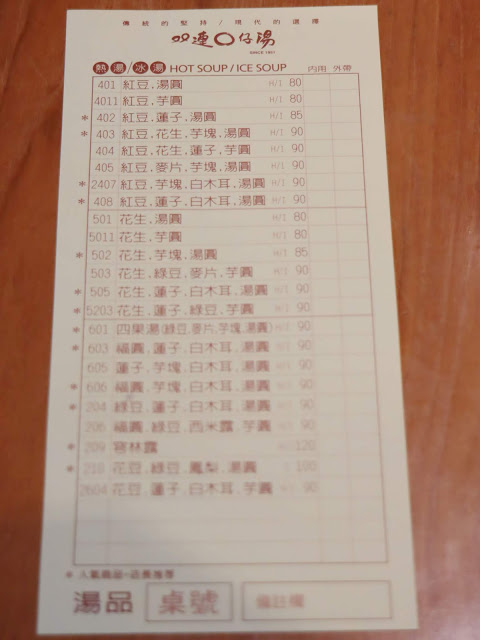 傳統的堅持/現代的選擇
双連〇仔湯
SINCE 1951
熱湯/冰湯 HOT SOUP/ICE SOUP 內用 外帶
401 紅豆.湯圓 H/I 80
4011 紅豆.芋圓 H/I 80
* 402 紅豆.蓮子.湯圓 H/I 85
* 403 紅豆.花生.芋塊.湯圓 H/I 90
404 紅豆.花生.蓮子.芋圓 H/I 90
405 紅豆.麥片.芋塊.湯圓 H/I 90
* 2407 紅豆.芋塊.白木耳.湯圓 H/I 90
* 408 紅豆.蓮子.白木耳.湯圓 H/I 90
501 花生.湯圓 H/I 80
5011 花生.芋圓 H/I 80
* 502 花生.芋塊.湯圓 H/I 85
503 花生.綠豆.麥片.芋圓 H/I 90
* 505 花生.蓮子.白木耳.湯圓 H/I 90
* 5203 花生.蓮子.綠豆.芋圓 H/I 90
* 601 四果湯(綠豆.麥片.芋塊.湯圓) H/I 90
* 603 福圓.蓮子.白木耳.湯圓 H/I 90
605 蓮子.芋塊.白木耳.湯圓 H/I 90
* 606 福圓.芋塊.白木耳.湯圓 H/I 90
* 204 綠豆.蓮子.白木耳.湯圓 H/I 90
206 福圓.綠豆.西米露.芋圓 H/I 90
* 209 120
* 210 花豆.綠豆.鳳梨.湯圓 100
2604 花豆.蓮子.白木耳.芋圓 90
* 人氣商品.店長推荐
湯品 桌號 備註欄